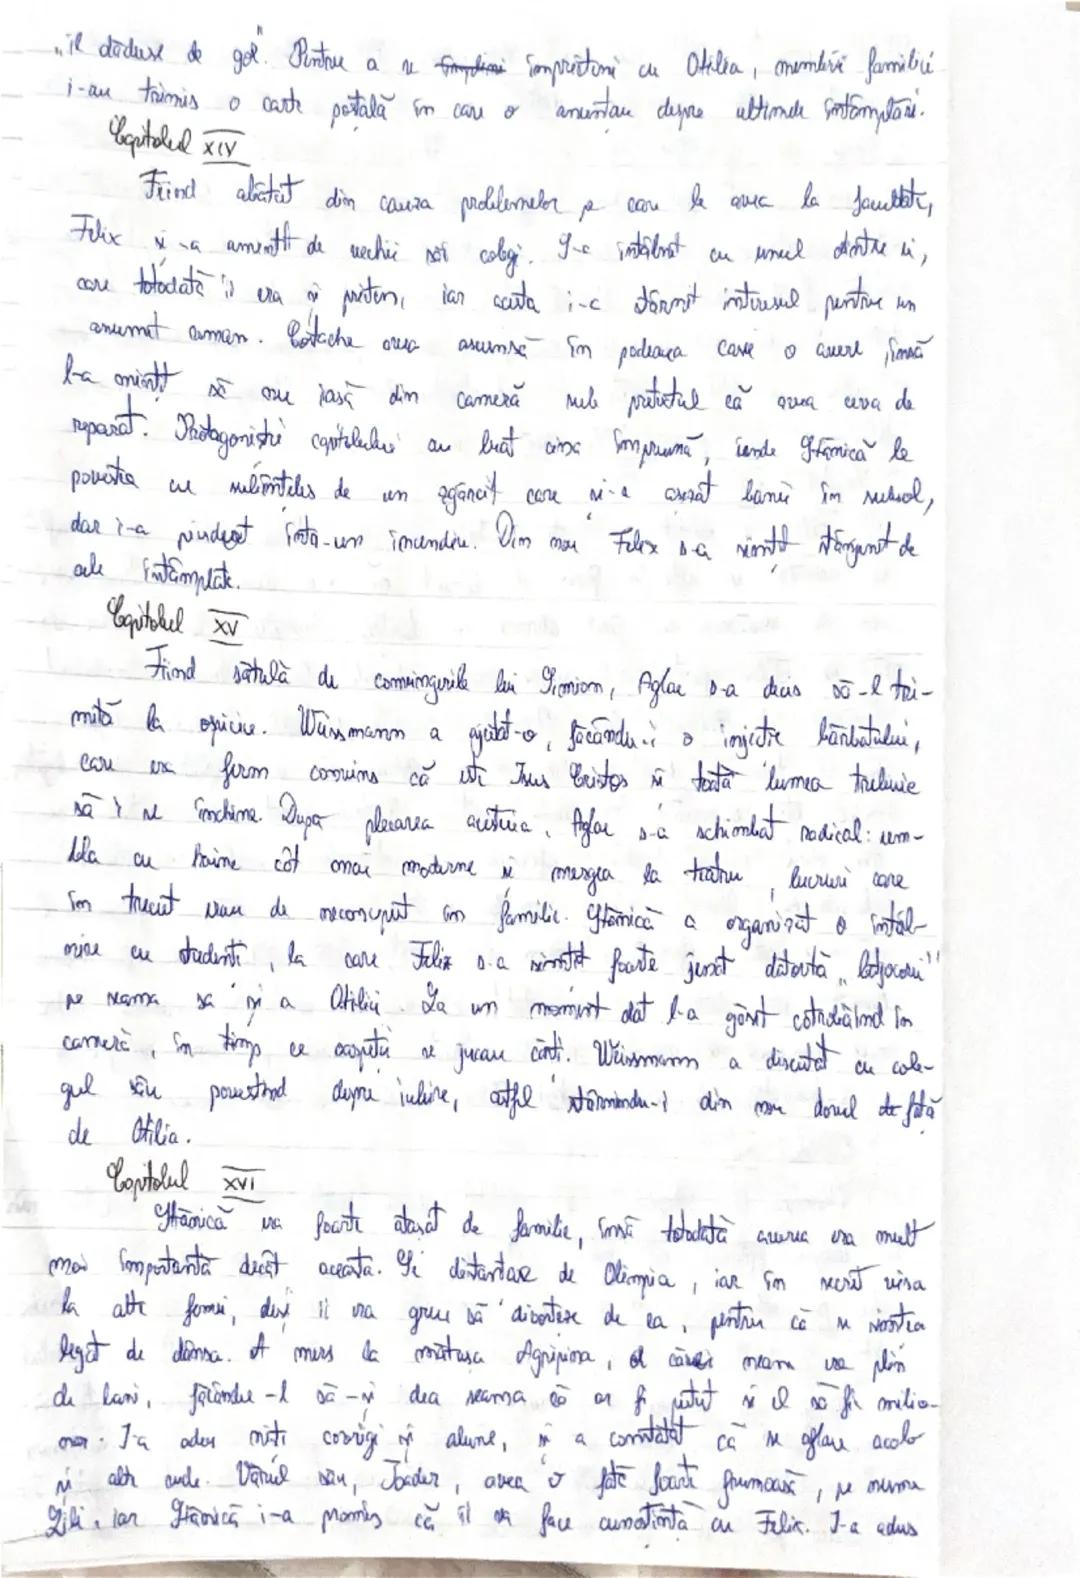 „îl dăduse de gol". Pentru a se împrieteni cu Otilia, membrii familiei
i-au trimis o carte poștală în care o anunțau despre ultimele întâmplări.
Capitolul XIV
Fiind abătut din cauza problemelor pe care le avea la facultate,
Felix și-a amintit de vechii săi colegi. S-a întâlnit cu unul dintre ei,
care totodată îi era și prieten, iar acesta i-a stârnit interesul pentru un
anumit . Costache avea ascunsă în podeaua casei o avere, însă
l-a să nu iasă din cameră sub pretextul că avea ceva de
reparat. Protagoniștii capitolului au luat cina împreună, unde Stănică le
povestea cu subînțeles de un zgârcit care și-a așezat banii în subsol,
dar i-a pierdut într-un incendiu. Din nou Felix s-a simțit stânjenit de
cele întâmplate.
Capitolul XV
Fiind sătulă de convingerile lui Simion, Aglae s-a decis să-l tri-
mită la ospiciu. Weissmann a ajutat-o, făcându-i o injecție bărbatului,
care era ferm convins că este Isus Cristos și toată lumea trebuie
să i se închine. După plecarea acestuia, Aglae s-a schimbat radical: um-
bla cu haine cât mai moderne și mergea la teatru, lucruri care
în trecut erau de neconceput în familie. Stănică a organizat o întâl-
nire cu studenți, la care Felix s-a simțit foarte jenat datorită „batjocorii"
pe seama sa și a Otiliei. La un moment dat l-a găsit cotrobăind în
cameră, în timp ce oaspeții se jucau cărți. Weissmann a discutat cu cole-
gul său povestind despre iubire, astfel stârnindu-i din nou dorul de față
de Otilia.
Capitolul XVI
Stănică era foarte atașat de familie, însă totodată averea era mult
mai importantă decât aceasta. Se distanțase de Olimpia, iar în secret visa
la alte femei, deși îi era greu să divorțeze de ea, pentru că se simțea
legat de dânsa. A mers la mătușa Agripina, al cărei era plin
de bani, făcându-l să-și dea seama că ar fi putut și el să fie milio-
nar. I-a adus niște covrigi și alune, și a constatat că se aflau acolo
și alte rude. Vărul său, Toader, avea o fată foarte frumoasă, pe nume
Lili, iar Stănică i-a promis că îi va face cunoștință cu Felix. I-a adus